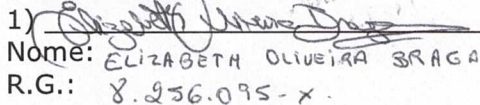 1) Elizabeth Oliveira Braga
Nome: ELIZABETH OLIVEIRA BRAGA
R.G.: 8.256.095-X.